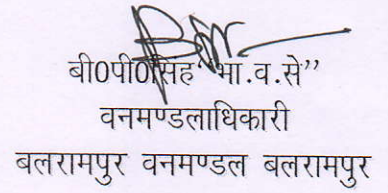 बी0पी0सिंह "भा.व.से"
वनमण्डलाधिकारी
बलरामपुर वनमण्डल बलरामपुर